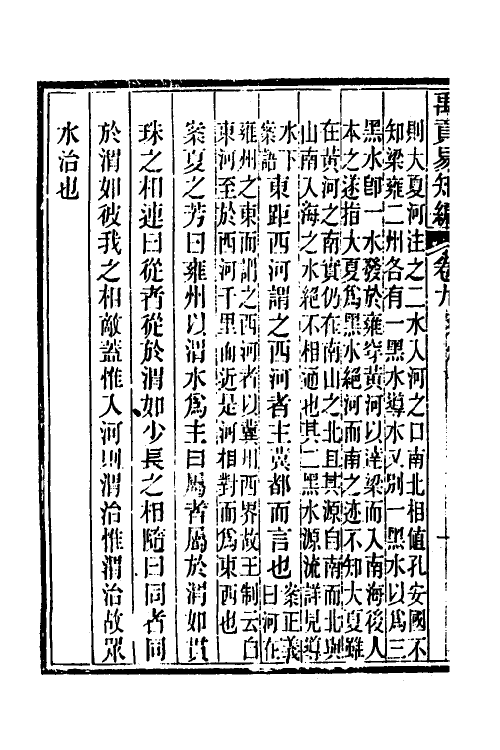 禹貢易知編
卷九
則大夏河注之二水入河之口南北相值孔安國不
知梁雍二州各有一黑水導水又別一黑水以爲三
黑水卽一水發於雍穿黃河以達梁而入南海後人
本之遂指大夏爲黑水絕河而南之迹不知大夏雖
在黃河之南實仍在南山之北且其源自南而北與
山南入海之水絕不相通也其二黑水源流詳見導
水下
案語
東距西河謂之西河者主冀都而言也
案正義
曰河在
雍州之東而謂之西河者以冀州西界故王制云自
東河至於西河千里而近是河相對而爲東西也
案夏之芳曰雍州以渭水爲主曰屬者屬於渭如貫
珠之相連曰從者從於渭如少長之相隨曰同者同
於渭如彼我之相敵蓋惟入河則渭治惟渭治故眾
水治也